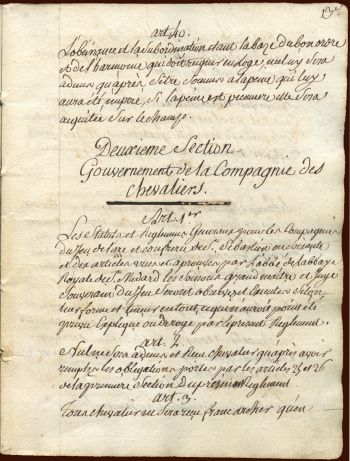 13e
art. 40.
L'obeissance et la subordination etant la baze du bon ordre
et de l'harmonie qui doit regner en loge, nul n'y sera
admis qu'après s'être soumis a la peine qui luy
aura été imposé, si la peine est pecuniere elle sera
acquitée sur le champ.
Deuxieme Section
Gouvernement de la Compagnie des
Chevaliers.
Art. 1er
Les Statuts et Reglemens Generaux pour les Compagnies
du Jeu de l'arc et confrerie de St. Sebastien en
et des articles et aprouvés par l'abbé de l'abbaye
Royale de St. Medard les Soissons grand maitre et Juge
Souverain du Jeu seront observés et Selon
leur forme et teneur en tout ce qui n'auroit point été
Expliqué ou derogé par le present Reglement.
art. 2
Nul ne sera admis et Receu chevalier qu'après avoir
remplis les obligations portés par les articles 25 et 26
de la premiere Section du present Reglement
art. 3.
Tous chevalier ne sera qu'un franc archer qu'en